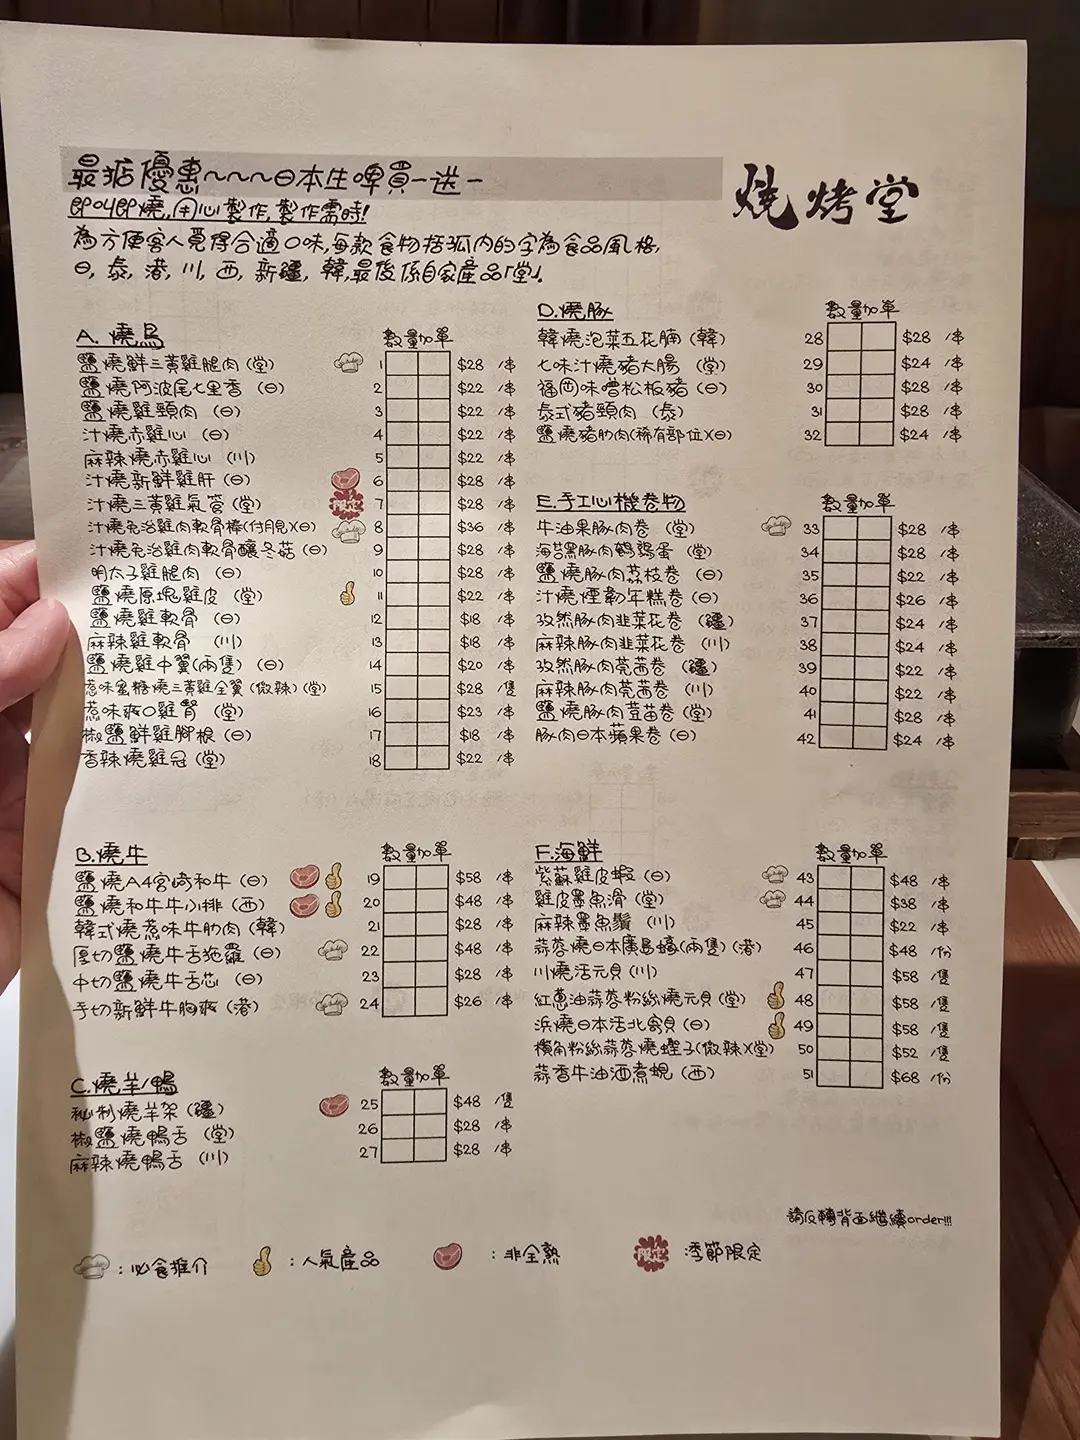 最掂優惠~~~日本生啤買一送一
燒烤堂
即叫即燒,用心製作,製作需時!
為方便客人覓得合適口味,每款食物括弧內的字為食品風格,
日, 泰, 港, 川, 西, 新疆, 韓,最後係自家產品「堂」.
A. 燒鳥 數量加單
鹽燒鮮三黃雞腿肉 (堂) 1 $28 /串
鹽燒阿波尾七里香 (日) 2 $22 /串
鹽燒雞頸肉 (日) 3 $22 /串
汁燒赤雞心 (日) 4 $22 /串
麻辣燒赤雞心 (川) 5 $22 /串
汁燒新鮮雞肝 (日) 6 $28 /串
汁燒三黃雞氣管 (堂) 限定 7 $28 /串
汁燒免治雞肉軟骨棒(付月見)(日) 8 $36 /串
汁燒免治雞肉軟骨釀冬菇 (日) 9 $28 /串
明太子雞腿肉 (日) 10 $28 /串
鹽燒原塊雞皮 (堂) 11 $22 /串
鹽燒雞軟骨 (日) 12 $18 /串
麻辣雞軟骨 (川) 13 $18 /串
鹽燒雞中翼(兩隻) (日) 14 $20 /串
惹味蜜糖燒三黃雞全翼 (微辣) (堂) 15 $28 /隻
惹味爽口雞腎 (堂) 16 $23 /串
椒鹽鮮雞腳根 (日) 17 $18 /串
香辣燒雞冠 (堂) 18 $22 /串
B.燒牛 數量加單
鹽燒A4宮崎和牛 (日) 19 $58 /串
鹽燒和牛牛小排 (西) 20 $48 /串
韓式燒惹味牛肋肉 (韓) 21 $28 /串
厚切鹽燒牛舌拖羅 (日) 22 $48 /串
中切鹽燒牛舌芯 (日) 23 $28 /串
手切新鮮牛胸爽 (港) 24 $26 /串
C.燒羊/鴨 數量加單
秘制燒羊架 (疆) 25 $48 /隻
椒鹽燒鴨舌 (堂) 26 $28 /串
麻辣燒鴨舌 (川) 27 $28 /串
D.燒豚 數量加單
韓燒泡菜五花腩 (韓) 28 $28 /串
七味汁燒豬大腸 (堂) 29 $24 /串
福岡味噌松板豬 (日) 30 $28 /串
泰式豬頸肉 (泰) 31 $28 /串
鹽燒豬肋肉(稀有部位)(日) 32 $24 /串
E.手工心機卷物 數量加單
牛油果豚肉卷 (堂) 33 $28 /串
海苔黑豚肉鵪鶉蛋 (堂) 34 $28 /串
鹽燒豚肉荔枝卷 (日) 35 $22 /串
汁燒煙韌年糕卷 (日) 36 $26 /串
孜然豚肉韭菜花卷 (疆) 37 $24 /串
麻辣豚肉韭菜花卷 (川) 38 $24 /串
孜然豚肉莞茜卷 (疆) 39 $22 /串
麻辣豚肉莞茜卷 (川) 40 $22 /串
鹽燒豚肉荳苗卷 (堂) 41 $28 /串
豚肉日本蘋果卷 (日) 42 $24 /串
F.海鮮 數量加單
紫蘇雞皮蝦 (日) 43 $48 /串
雞皮墨魚滑 (堂) 44 $38 /串
麻辣墨魚鬚 (川) 45 $22 /串
蒜蓉燒日本廣島蠔(兩隻) (港) 46 $48 /份
川燒活元貝 (川) 47 $58 /隻
紅蔥油蒜蓉粉絲燒元貝 (堂) 48 $58 /隻
浜燒日本活北寄貝 (日) 49 $58 /隻
欖角粉絲蒜蓉燒蟶子(微辣)(堂) 50 $52 /隻
蒜香牛油酒煮蜆 (西) 51 $68 /份
請反轉背面繼續order!!!
:必食推介 :人氣產品 :非全熟 限定 季節限定